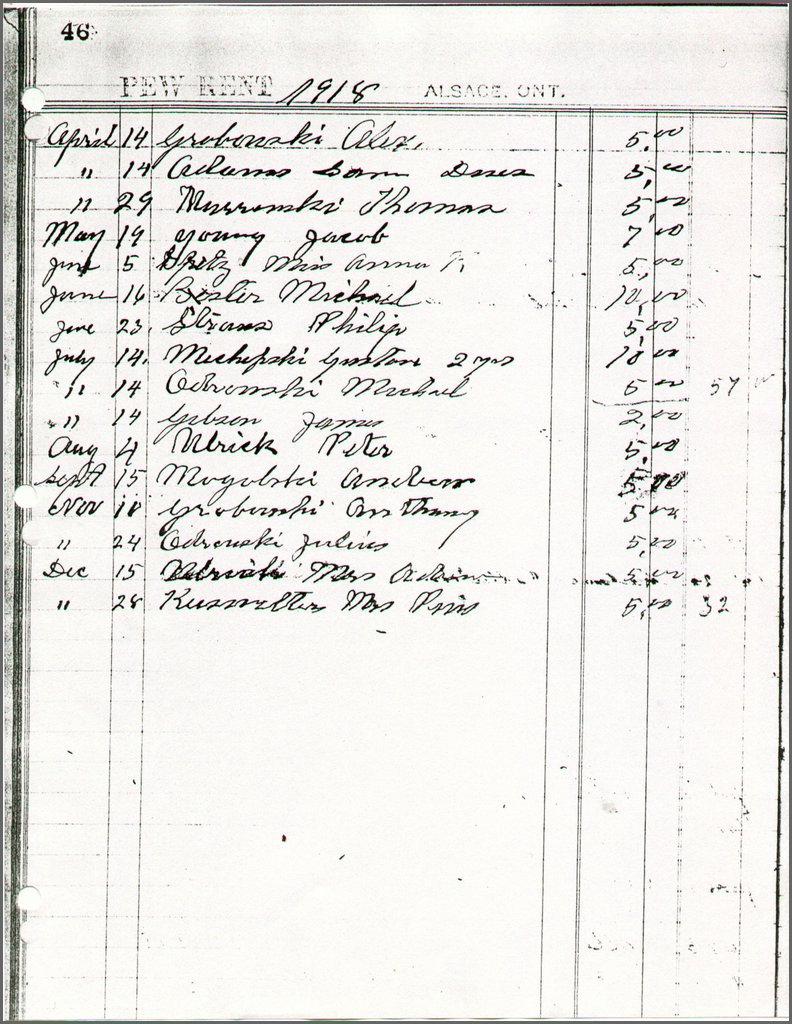 46
PEW RENT 1918 ALSACE, ONT.
April 14 Grabowski Alex. 5.00
" 14 Adams Sam 5.00
" 29 Thomas 5.00
May 19 Young Jacob 7.00
June 5 Miss Anna 5.00
June 16 Bester Michael 10.00
June 23. Straus Philip 5.00
July 14. Gustav 2 yrs 10.00
" 14 Odrowski Michael 5 00 57
" 14 Gibson James 2.00
Aug 4 Ulrick Peter 5.00
Sept 15 Mogolski Andrew 5.00
Nov 10 Grabowski Anthony 5 00
" 24 Odrowski Julius 5.00
Dec 15 Mrs 5.00
" 28 Mrs 5.00 32